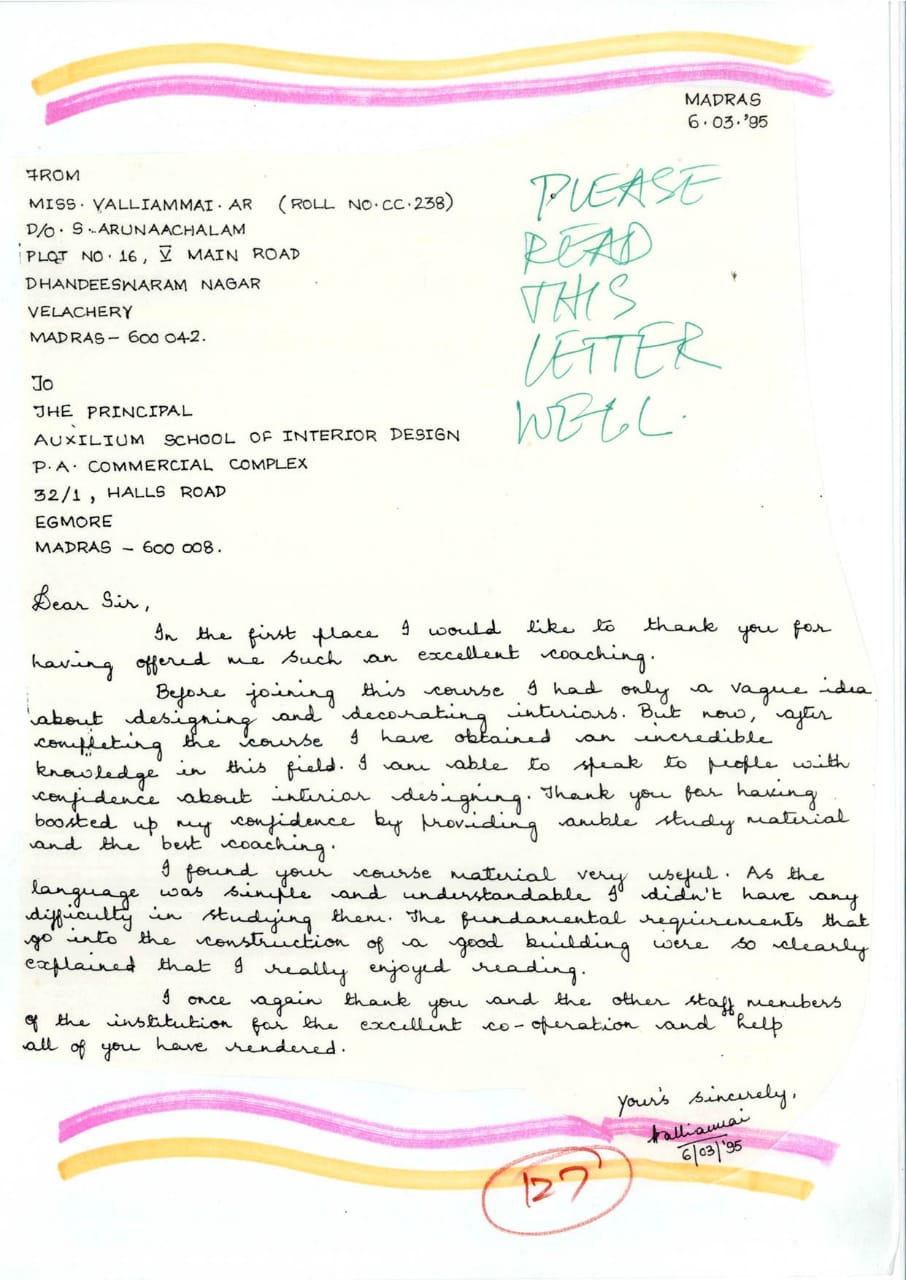 MADRAS
6.03.'95
FROM
MISS. VALLIAMMAI. AR (ROLL NO. CC. 238)
D/O. S. ARUNAACHALAM
PLOT NO. 16, V MAIN ROAD
DHANDEESWARAM NAGAR
VELACHERY
MADRAS - 600 042.
PLEASE
READ
THIS
LETTER
WELL.
To
THE PRINCIPAL
AUXILIUM SCHOOL OF INTERIOR DESIGN
P.A. COMMERCIAL COMPLEX
32/1, HALLS ROAD
EGMORE
MADRAS - 600 008.
Dear Sir,
In the first place I would like to thank you for
having offered me such an excellent coaching.
Before joining this course I had only a vague idea
about designing and decorating interiors. But now, after
completing the course I have obtained an incredible
knowledge in this field. I am able to speak to people with
confidence about interior designing. Thank you for having
boosted up my confidence by providing amble study material
and the best coaching.
I found your course material very useful. As the
language was simple and understandable I didn't have any
difficulty in studying them. The fundamental requirements that
go into the construction of a good building were so clearly
explained that I really enjoyed reading.
I once again thank you and the other staff members
of the institution for the excellent co-operation and help
all of you have rendered.
Your's sincerely,
Valliammai
6/03/'95
127